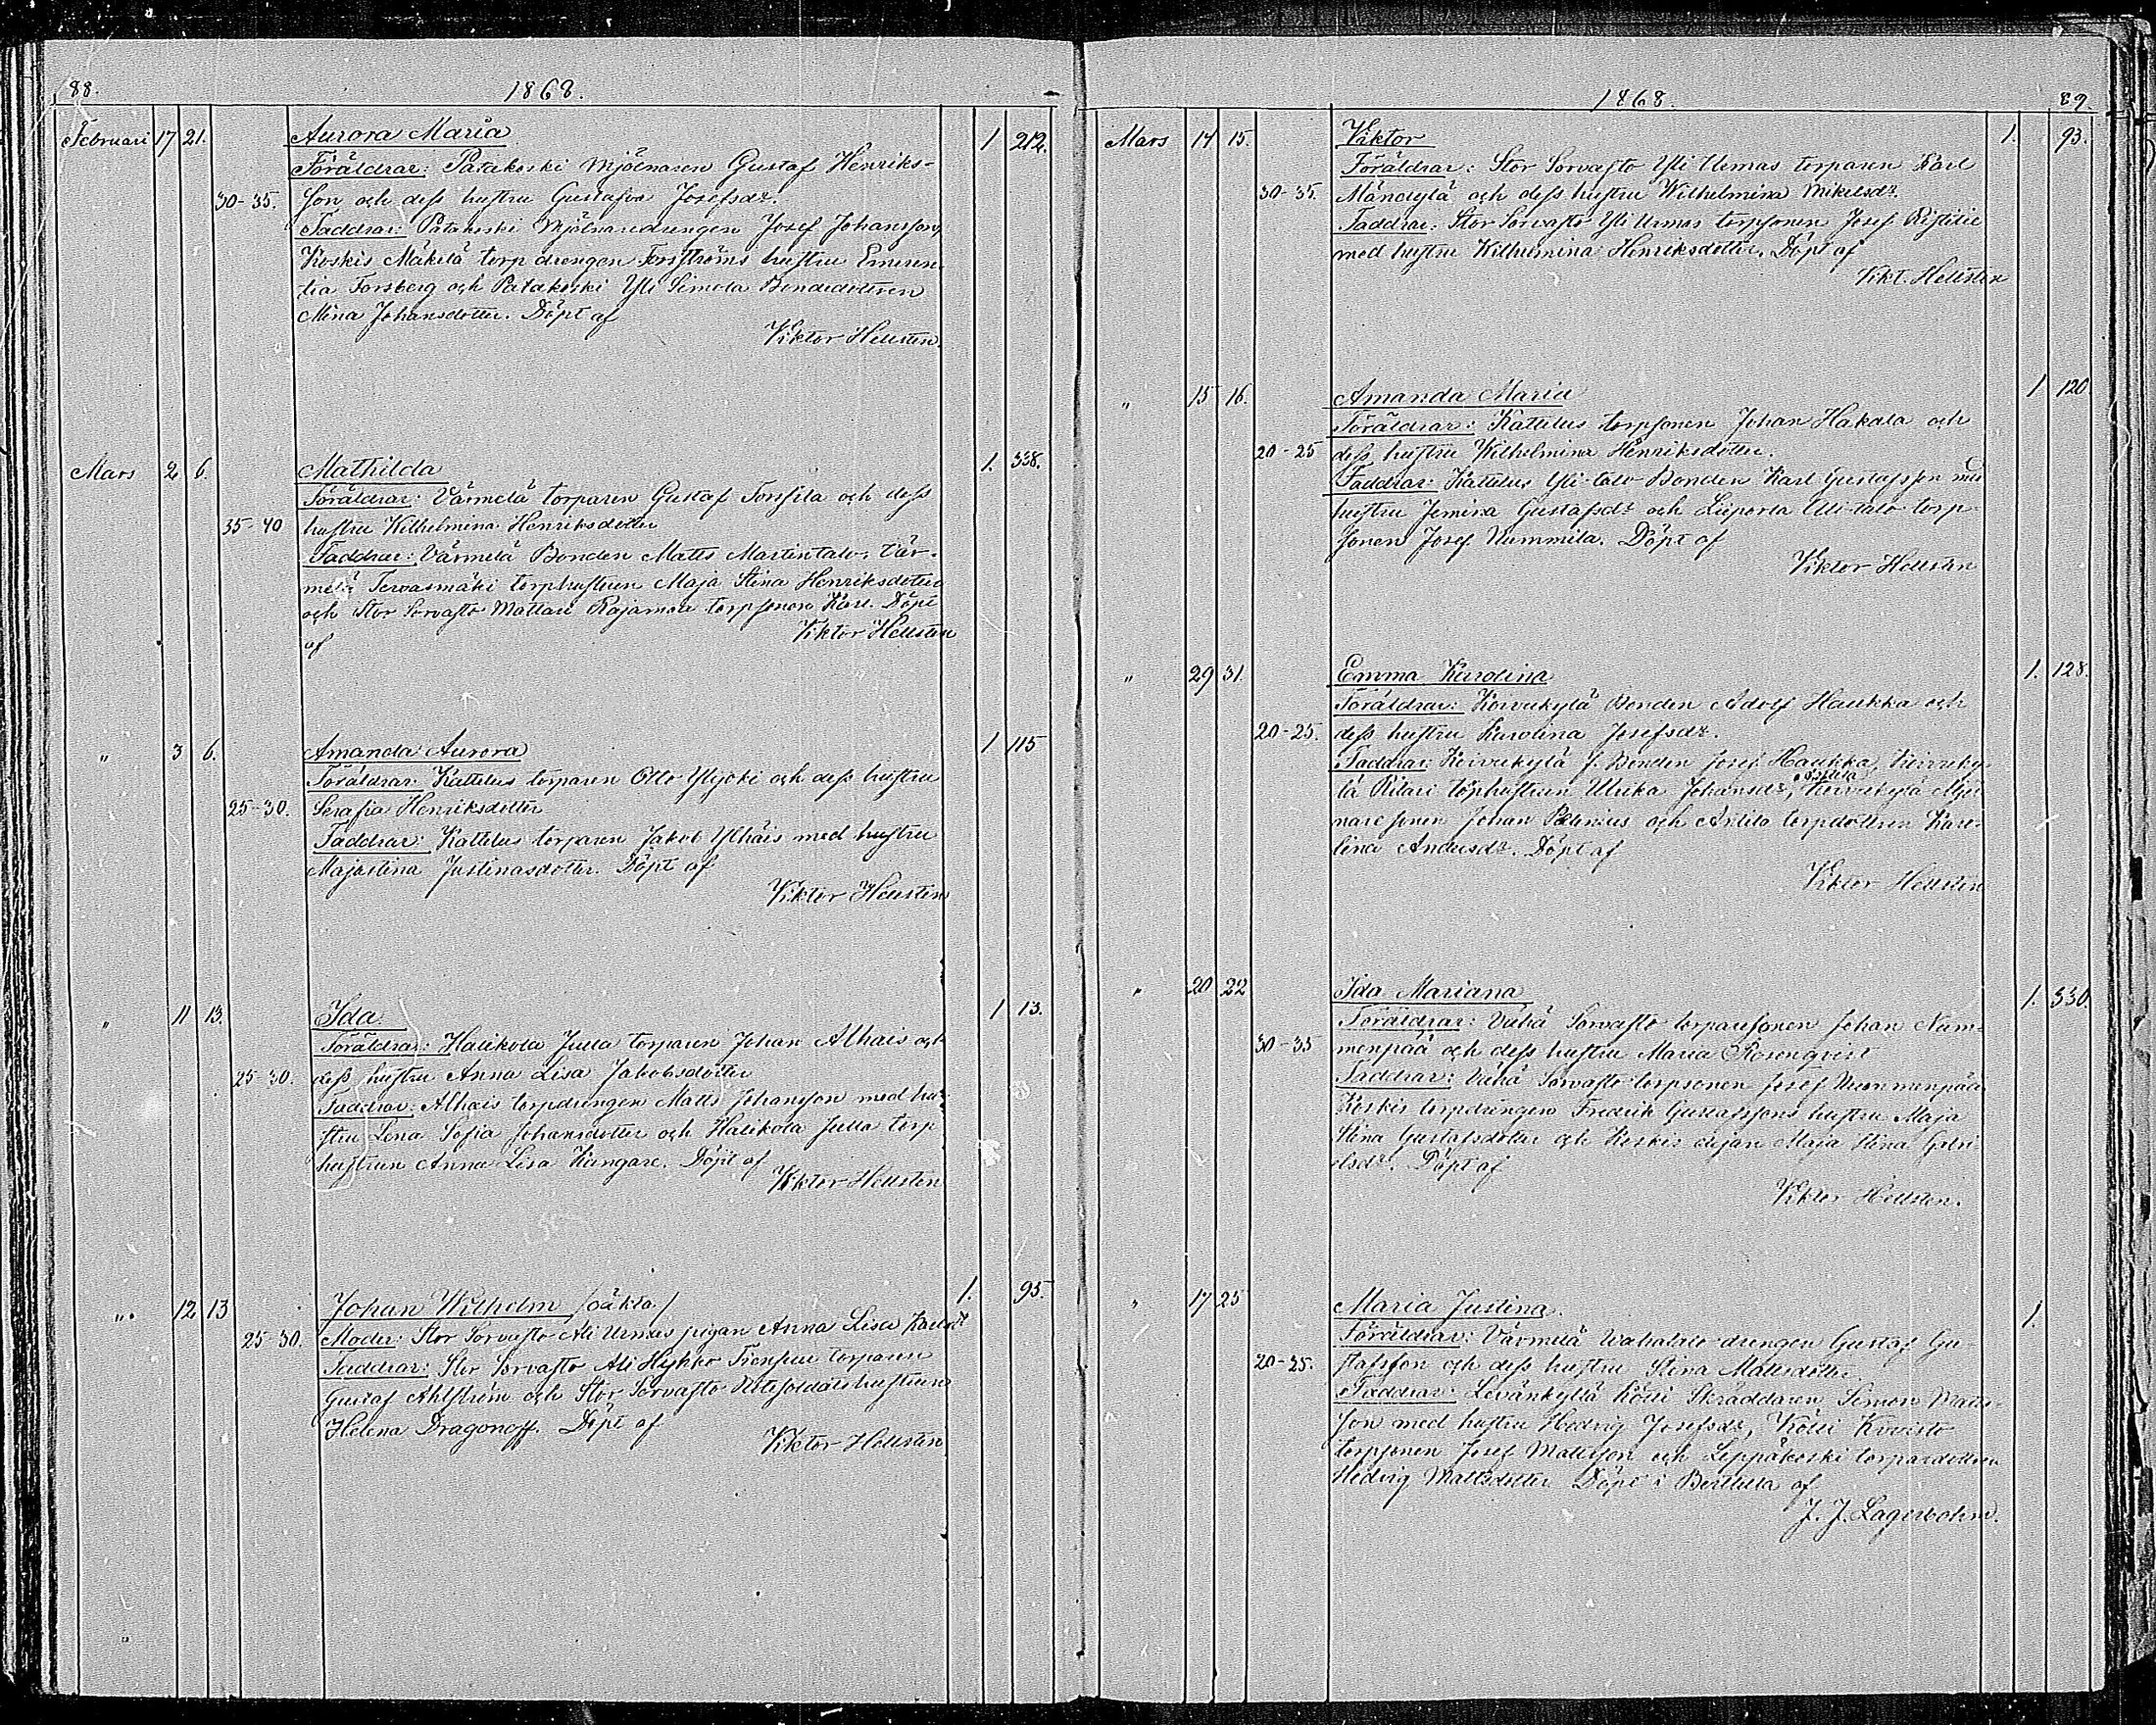 88.
1868.
Februari 17 21. Aurora Maria 1 212.
Föräldrar: Patakoski Mjölnaren Gustaf Henriks-
30-35. son och dess hustru Gustafva Josefsdr.
Faddrar: Patakoski Mjölnaredrengen Josef Johansson,
Koskis Mäkelä torp drengen Forsströms hustru Emeren-
tia Forsberg och Patakoski Yli Simola Bondedottren
Mina Johansdotter. Döpt af
Viktor Hellsten.
Mars 2 6. Mathilda 1. 338.
Föräldrar: Värmelä torparen Gustaf Torssila och dess
35-40 hustru Wilhelmina Henriksdotter
Faddrar: Värmelä Bonden Matts Martintalo, Vär-
melä Tervasmäki torphustrun Maja Stina Henriksdotter
och Stor Sorvasto Mattari Rajamaa torpsonen Karl. Döpt
af Viktor Hellsten
" 3 6. Amanda Aurora 1 115
Föräldrar: Kattelus torparen Otto Ylijoki och dess hustru
25-30. Serafia Henriksdotter
Faddrar: Kattelus torparen Jakob Ylhäis med hustru
Majastina Justinasdotter. Döpt af
Viktor Hellsten
" 11 13. Ida. 1 13.
Föräldrar: Halikola Julla torparen Johan Alhais och
25-30. dess hustru Anna Lisa Jakobsdotter
Faddrar: Alhais torpdrengen Matts Johansson med hu-
stru Lena Sofia Johansdotter och Halikola Julla torp
hustrun Anna Lisa Kangare. Döpt af
Viktor Hellsten
" 12 13 Johan Wilhelm /oäkta/ 1. 95.
25-30. Moder: Stor Sorvasto Ali Urmas pigan Anna Lisa Karlsdr
Faddrar: Stor Sorvasto Ali Hyhko torparen
Gustaf Ahlström och Stor Sorvasto hustrun
Helena Dragonoff. Döpt af
Viktor Hellsten
1868.
89.
Mars 14 15. Viktor 1. 93.
Föräldrar: Stor Sorvasto Yli Urmas torparen Karl
30-35. Mändylä och dess hustru Wilhelmina Mikelsdr.
Faddrar: Stor Sorvasto Yli Urmas torpsonen Josef
med hustru Wilhelmina Henriksdotter. Döpt af
Vikt. Hellsten
" 15 16. Amanda Maria 1 120.
Föräldrar: Kattelus torpsonen Johan Hakala och
20-25 dess hustru Wilhelmina Henriksdotter.
Faddrar: Kattelus Yli-talo Bonden Karl Gustafsson med
hustru Jemina Gustafsdr och Liiperla Ali-talo torp-
sonen Josef Nummila. Döpt af
Viktor Hellsten
" 29 31. Emma Karolina 1. 128.
Föräldrar: Koivukylä Bonden Adolf Haukka och
20-25. dess hustru Karolina Josefsdr.
Faddrar: Koivukylä f. Bonden Josef Haukka, Koivuky-
lä Ritari torphustrun Ulrika Johansdr, Anttila Koivukylä Mjöl-
nare sonen Johan Palenius och Antila torpdottren Karo-
lina Andersdr. Döpt af
Viktor Hellsten
" 20 22 Ida Mariana 1. 330.
Föräldrar: Vähä Sorvasto torparesonen Johan Num-
30-35 menpää och dess hustru Maria Rosenqvist
Faddrar: Vähä Sorvasto torpsonen Josef Nummenpää
Koskis torpdrengen Fredrik Gustafssons hustru Maja
Stina Gustafsdotter och Koskis dejan Maja Stina Gabri-
elsdr. Döpt af
Viktor Hellsten.
" 17 25 Maria Justina. 1.
Föräldrar: Värmelä Wahatalo drengen Gustaf Gu
20-25. stafsson och dess hustru Stina Mattsdotter.
Faddrar: Levänkyllä Kölli Skräddaren Simon Matts-
son med hustru Hedvig Josefsdr, Kölli Kovisto
torpsonen Josef Mattsson och Leppäkoski torparedottren
Hedvig Mattsdotter Döpt i Berttula af
J. J. Lagerbohm.